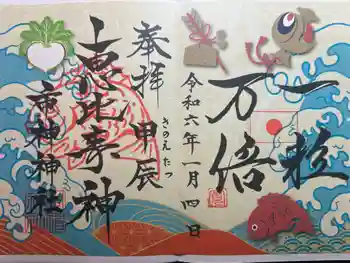 一粒
万倍
令和六年一月四日
奉拝 甲辰
きのえたつ
恵比寿神
市神神社